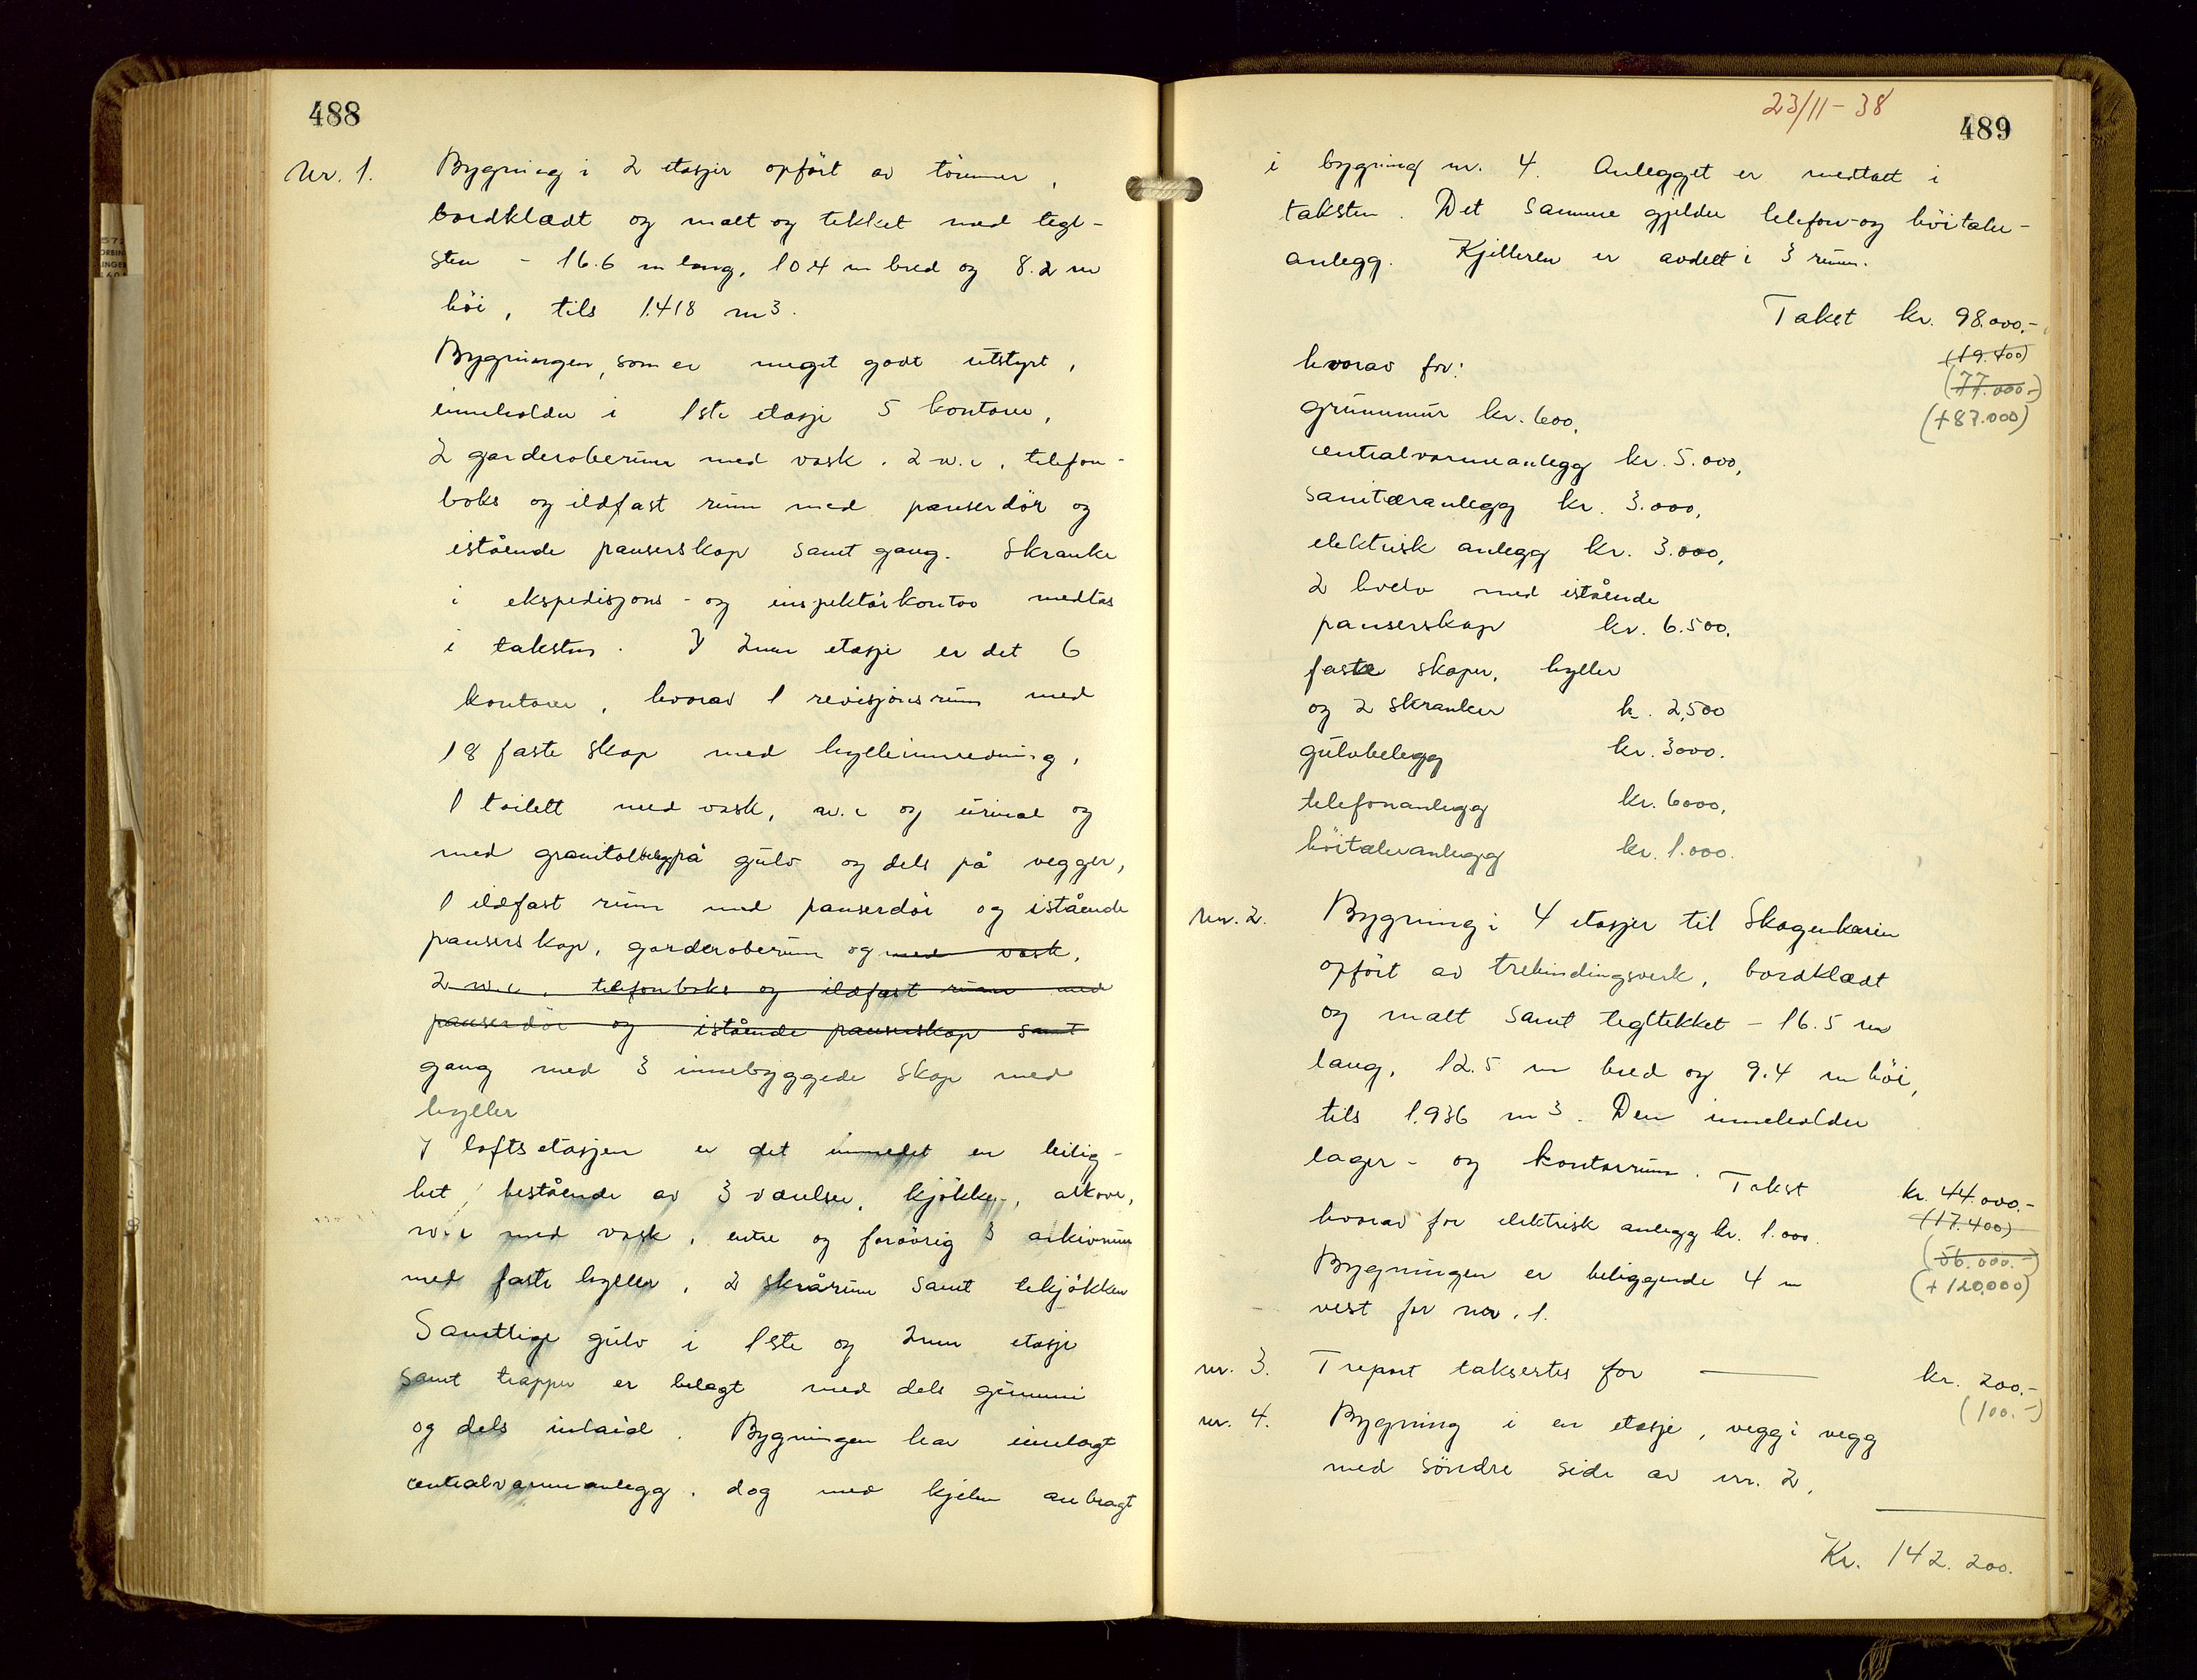 488
Nr. 1. Bygning i 2 etasjer opført av tømmer,
bordklædt og malt og tekket med tegl-
sten - 16.6 m lang, 10.4 m bred og 8.2 m
höi, tils 1.418 m3.
Bygningen, som er meget godt utstyrt,
inneholder i 1ste etasje 5 kontorer,
2 garderoberum med vask, 2 w.c, telefon-
boks og ildfast rum med panserdör og
istående panserskap samt gang. Skranke
i ekspedisjons- og inspektörkontor medtas
i taksten. I 2nen etasje er det 6
kontorer, hvorav 1 revisjonsrum med
18 faste skap med hylleinnredning,
1 toilett med vask, w.c og urinal og
med granitolbelegg på gulv og dels på vegger,
1 ildfast rum med panserdör og istående
panserskap, garderoberum og med vask,
2 w.c, telefonboks og ildfast rum med
panserdör og istående panserskap samt
gang med 3 innebyggede skap med
hyller
I loftsetasjen er det innredet en leilig-
het, bestående av 3 værelser, kjökken, alkove,
w.c med vask, entre og forövrig 3 arkivrum
med faste hyller, 2 skrårum samt tekjökken
Samtlige gulv i 1ste og 2nen etasje
samt trapper er belagt med dels gummi
og dels inlaid. Bygningen har innlagt
centralvarmeanlegg, dog med kjelen anbragt
23/11-38
489
i bygning nr. 4. Anlegget er medtatt i
taksten. Det samme gjelder telefon- og höitaler-
anlegg. Kjelleren er avdelt i 3 rum.
Takst kr. 98.000.-
(19.400)
hvorav for:
(77.000.-)
grunnmur kr. 600,
(+87.000)
centralvarmeanlegg kr. 5.000,
sanitæranlegg kr. 3.000,
elektrisk anlegg kr. 3.000,
2 hvelv med istående
panserskap kr. 6.500,
faste skaper, hyller
og 2 skranker kr. 2,500
gulvbelegg kr. 3000.
telefonanlegg kr. 6000,
höitaleranlegg kr. 1.000.
Nr. 2. Bygning i 4 etasjer til Skagenkaien
opfört av trebindingsverk, bordklædt
og malt samt tegltekket - 16.5 m
lang, 12.5 m bred og 9.4 m höi,
tils 1.936 m3. Den inneholder
lager- og kontorrum. Takst kr. 44.000.-
(17.400)
hvorav for elektrisk anlegg kr. 1.000.
(56.000.-)
Bygningen er beliggende 4 m
(+120,000)
vest for nr. 1.
nr. 3. Treport taksertes for kr. 200.-
(100.-)
nr. 4. Bygning i en etasje, vegg i vegg
med söndre side av nr. 2,
Kr. 142.200.